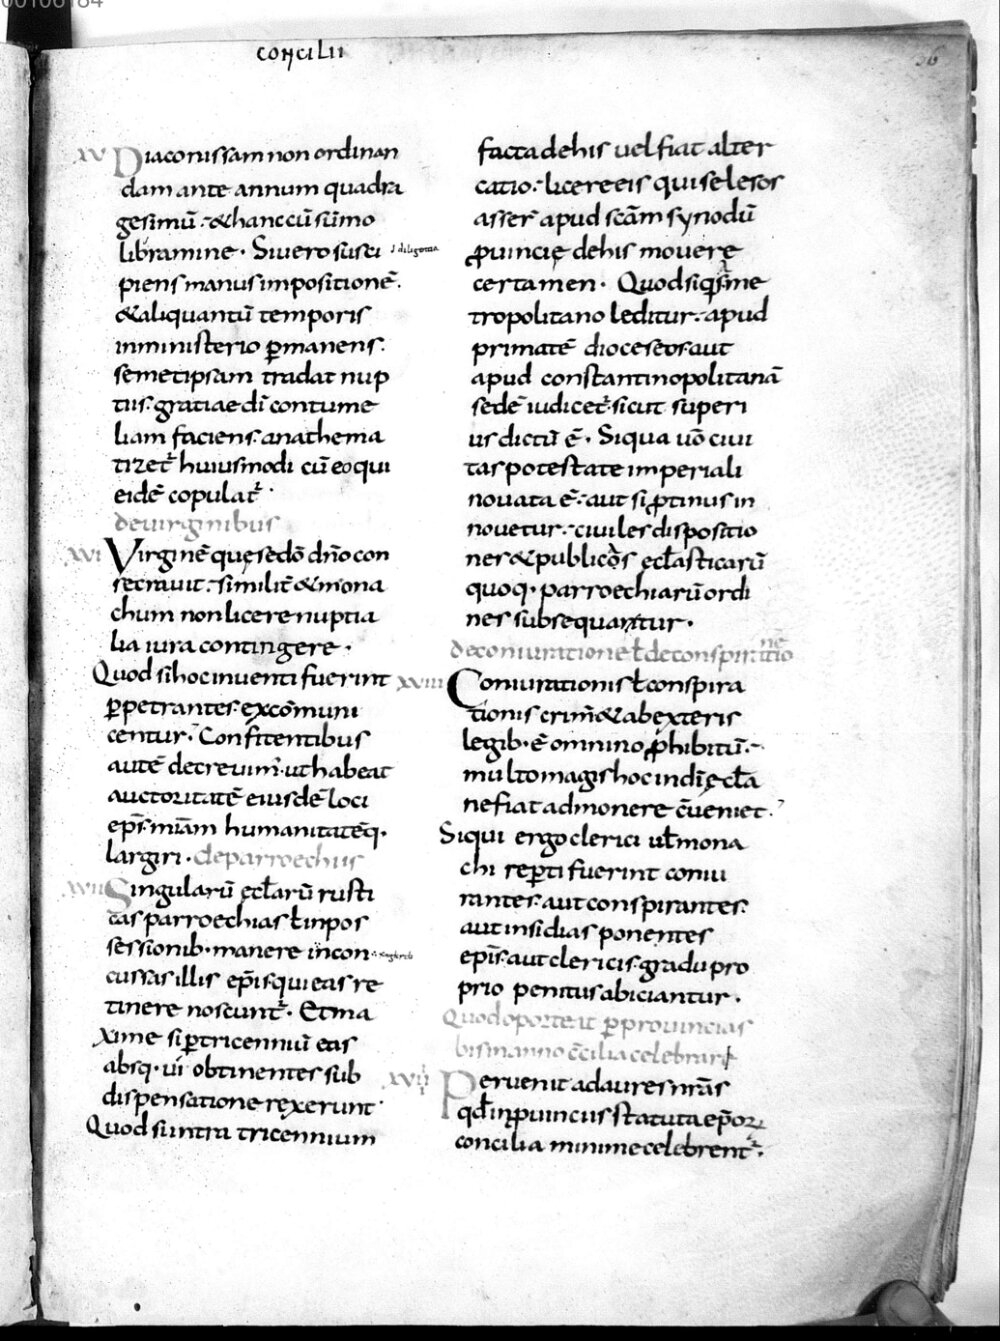 00106184
CONCILII
36
XV Diaconissam non ordinan
dam ante annum quadra
gesimū · & hanc cū sūmo
libramine · Si vero susci
piens manus impositionē ·
& aliquantū temporis
in ministerio ꝑmanens ·
semetipsam tradat nup
tiis · gratiae dī contume
liam faciens · anathema
tizet᷑ huiusmodi cū eo qui
eidē copulat᷑ ·
de virginibus
XVI Virginē que se dō dn̄o con
secravit · similit᷑ & mona
chum non licere nuptia
lia iura contingere ·
Quod si hoc inventi fuerint
ꝑpetrantes · excōmuni
centur · Confitentibus
autē decrevim᷒ · ut habeat
auctoritatē eiusdē loci
ep̄s · miām humanitatēq·
largiri · de parroechiis
XVII Singularū ęcl̄arū rusti
cas parroechias ł in pos
sessionib· manere incon
cussas illis ep̄is qui eas re
tinere noscunt᷑ · Et ma
xime si ꝑ tricenniū eas
absq· vi obtinentes sub
dispensatione rexerunt ·
Quod si intra tricennium
facta de his vel fiat alter
catio · licere eis qui se lesos
asser̄ apud sc̄am synodū
ꝓvincię de his movere
certamen · Quod si q̄s a me
tropolitano leditur · apud
primatē dioceseos aut
apud constantinopolitanā
sedē iudicet᷑ · sicut superi
us dictū ē · Si qua v̄o civi
tas potestate imperiali
novata ē · aut si ꝓtinus in
novetur · civiles dispositio
nes & publicos ęcl̄asticarū
quoq· parroechiarū ordi
nes subsequantur ·
de coniuratione ł de conspiratione
XVIII Coniurationis ł conspira
tionis crim̄ & ab exteris
legib· ē omnino ꝓhibitū ·
multo magis hoc in dī ęcl̄a
ne fiat admonere c̄veniet ·
Siqui ergo clerici ul̄ mona
chi reꝑti fuerint coniu
rantes · aut conspirantes
aut insidias ponentes
ep̄is · aut clericis · gradu pro
prio penitus abiciantur ·
Quod oporteat ꝑ provincias
bis in anno c̄cilia celebrari
XVIIII Pervenit ad aures nr̄as
qd̄ in ꝓvinciis statuta ep̄oꝝ
concilia minime celebrent᷑ ·